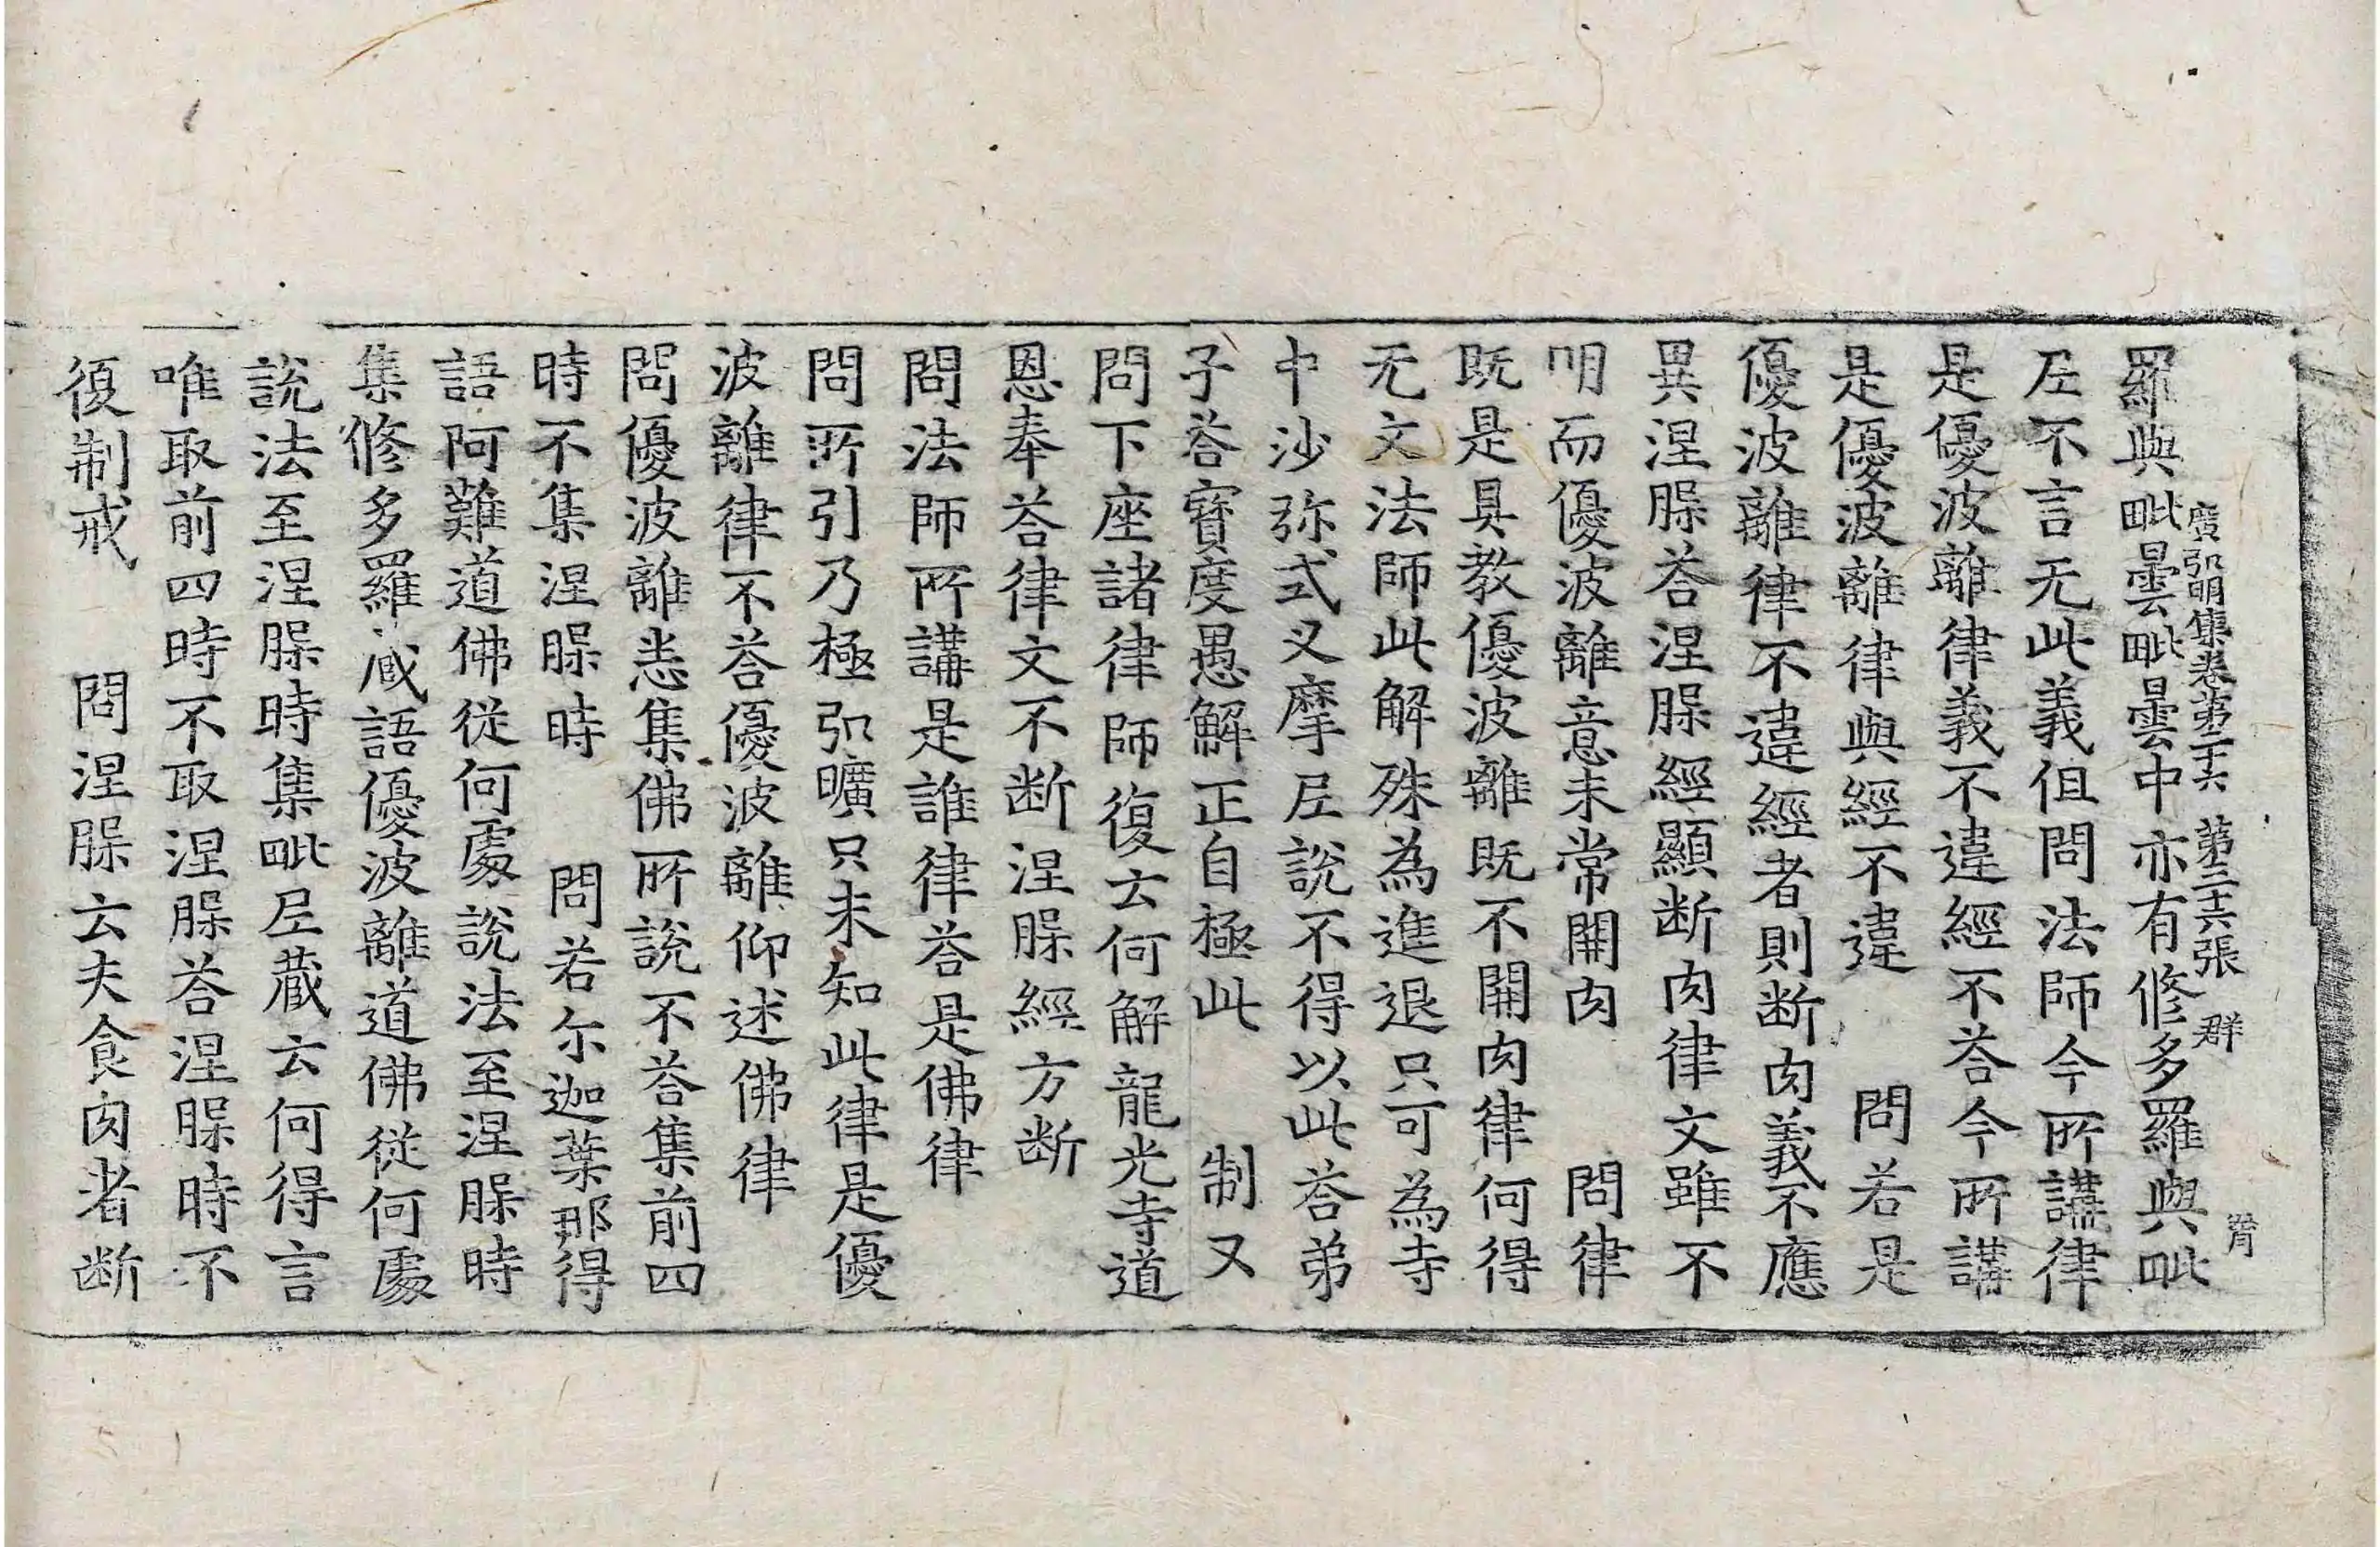 廣弘明集卷第二十六 第三十六張 群
羅與毗曇毗曇中亦有修多羅與毗
𡰱不言无此義但問法師今所講律
是優波離律義不違經不荅今所講
是優波離律與經不違 問若是
優波離律不違經者則断肉義不應
異涅槃荅涅槃經顯断肉律文雖不
明而優波離意未常開肉 問律
既是具教優波離既不開肉律何得
无文法師此解殊為進退只可為寺
中沙弥式叉摩𡰱說不得以此荅弟
子荅寳度愚解正自極此 制又
問下座諸律師復云何解龍光寺道
恩奉荅律文不断涅槃經方断
問法師所講是誰律荅是佛律
問所引乃極弘曠只未知此律是優
波離律不荅優波離仰述佛律
問優波離悉集佛所說不荅集前四
時不集涅槃時 問若尒迦葉那得
語阿難道佛從何處說法至涅槃時
集修多羅藏語優波離道佛從何處
說法至涅槃時集毗𡰱藏云何得言
唯取前四時不取涅槃荅涅槃時不
復制戒 問涅槃云夫食肉者断